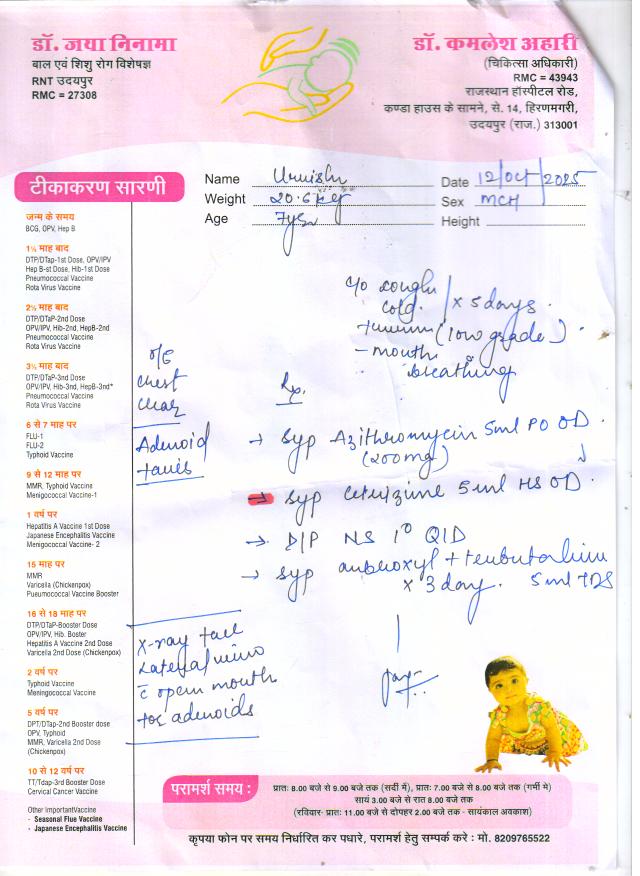 डॉ. जया निनामा
बाल एवं शिशु रोग विशेषज्ञ
RNT उदयपुर
RMC = 27308
डॉ. कमलेश अहारी
(चिकित्सा अधिकारी)
RMC = 43943
राजस्थान हॉस्पीटल रोड,
कण्डा हाउस के सामने, से. 14, हिरणमगरी,
उदयपुर (राज.) 313001
Name
Date 12/Oct/2025
Weight 20.6 kg
Sex MCH
Age 7
Height
टीकाकरण सारणी
जन्म के समय
BCG, OPV, Hep B
1½ माह बाद
DTP/DTap-1st Dose, OPV/IPV
Hep B-st Dose, Hib-1st Dose
Pneumococcal Vaccine
Rota Virus Vaccine
2½ माह बाद
DTP/DTaP-2nd Dose
OPV/IPV, Hib-2nd, HepB-2nd
Pneumococcal Vaccine
Rota Virus Vaccine
3½ माह बाद
DTP/DTaP-3nd Dose
OPV/IPV, Hib-3nd, HepB-3nd*
Pneumococcal Vaccine
Rota Virus Vaccine
6 से 7 माह पर
FLU-1
FLU-2
Typhoid Vaccine
9 से 12 माह पर
MMR, Typhoid Vaccine
Menigococcal Vaccine-1
1 वर्ष पर
Hepatitis A Vaccine 1st Dose
Japanese Encephalitis Vaccine
Menigococcal Vaccine- 2
15 माह पर
MMR
Varicella (Chickenpox)
Pueumococcal Vaccine Booster
16 से 18 माह पर
DTP/DTaP-Booster Dose
OPV/IPV, Hib. Boster
Hepatitis A Vaccine 2nd Dose
Varicella 2nd Dose (Chickenpox)
2 वर्ष पर
Typhoid Vaccine
Meningococcal Vaccine
5 वर्ष पर
DPT/DTap-2nd Booster dose
OPV, Typhoid
MMR, Varicella 2nd Dose
(Chickenpox)
10 से 12 वर्ष पर
TT/Tdap-3rd Booster Dose
Cervical Cancer Vaccine
Other ImportantVaccine
- Seasonal Flue Vaccine
- Japanese Encephalitis Vaccine
c/o cough
cold. x 5 days.
(low grade)
- mouth
breathing
O/E
Chest
clear
Adenoid
Rp.
→ Syp Azithromycin 5ml PO OD.
(200mg)
→ Syp Cetirizine 5ml HS OD.
→ NS 1° QID
→ Syp ambroxyl + terbutaline
x 3 day. 5ml TDS
X-ray
Lateral view
c̄ open mouth
for adenoids
परामर्श समय :
प्रातः 8.00 बजे से 9.00 बजे तक (सर्दी में), प्रातः 7.00 बजे से 8.00 बजे तक (गर्मी मे)
सायं 3.00 बजे से रात 8.00 बजे तक
(रविवार- प्रातः 11.00 बजे से दोपहर 2.00 बजे तक - सायंकाल अवकाश)
कृपया फोन पर समय निर्धारित कर पधारे, परामर्श हेतु सम्पर्क करे : मो. 8209765522